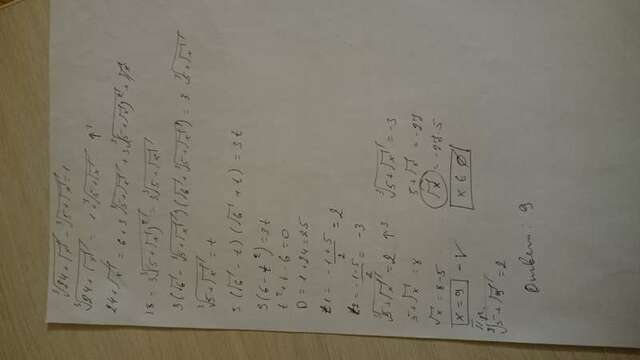 ∛(24+√x) − ∛(5+√x) = 1
∛(24+√x) = 1+∛(5+√x) ↑³
24+√x = 6+3∛(5+√x)+3∛(5+√x)²+√x
18 − 3∛(5+√x)² = 3∛(5+√x)
3(√6 − ∛(5+√x))(√6+∛(5+√x)) = 3∛(5+√x)
∛(5+√x) = t
3(√6 − t)(√6 + t) = 3t
3(6−t²)=3t
t²+t−6=0
D=1+24=25
t₁ = (−1+5)/2 = 2
t₂ = (−1−5)/2 = −3
∛(5+√x) = 2 ↑³ ∛(5+√x) = −3
5+√x = 8 5+√x = −27
√x = 8−5 √x = −27−5
x=9 −V x ∈ ∅
∛(5+√9) = 2
Ответ: 9